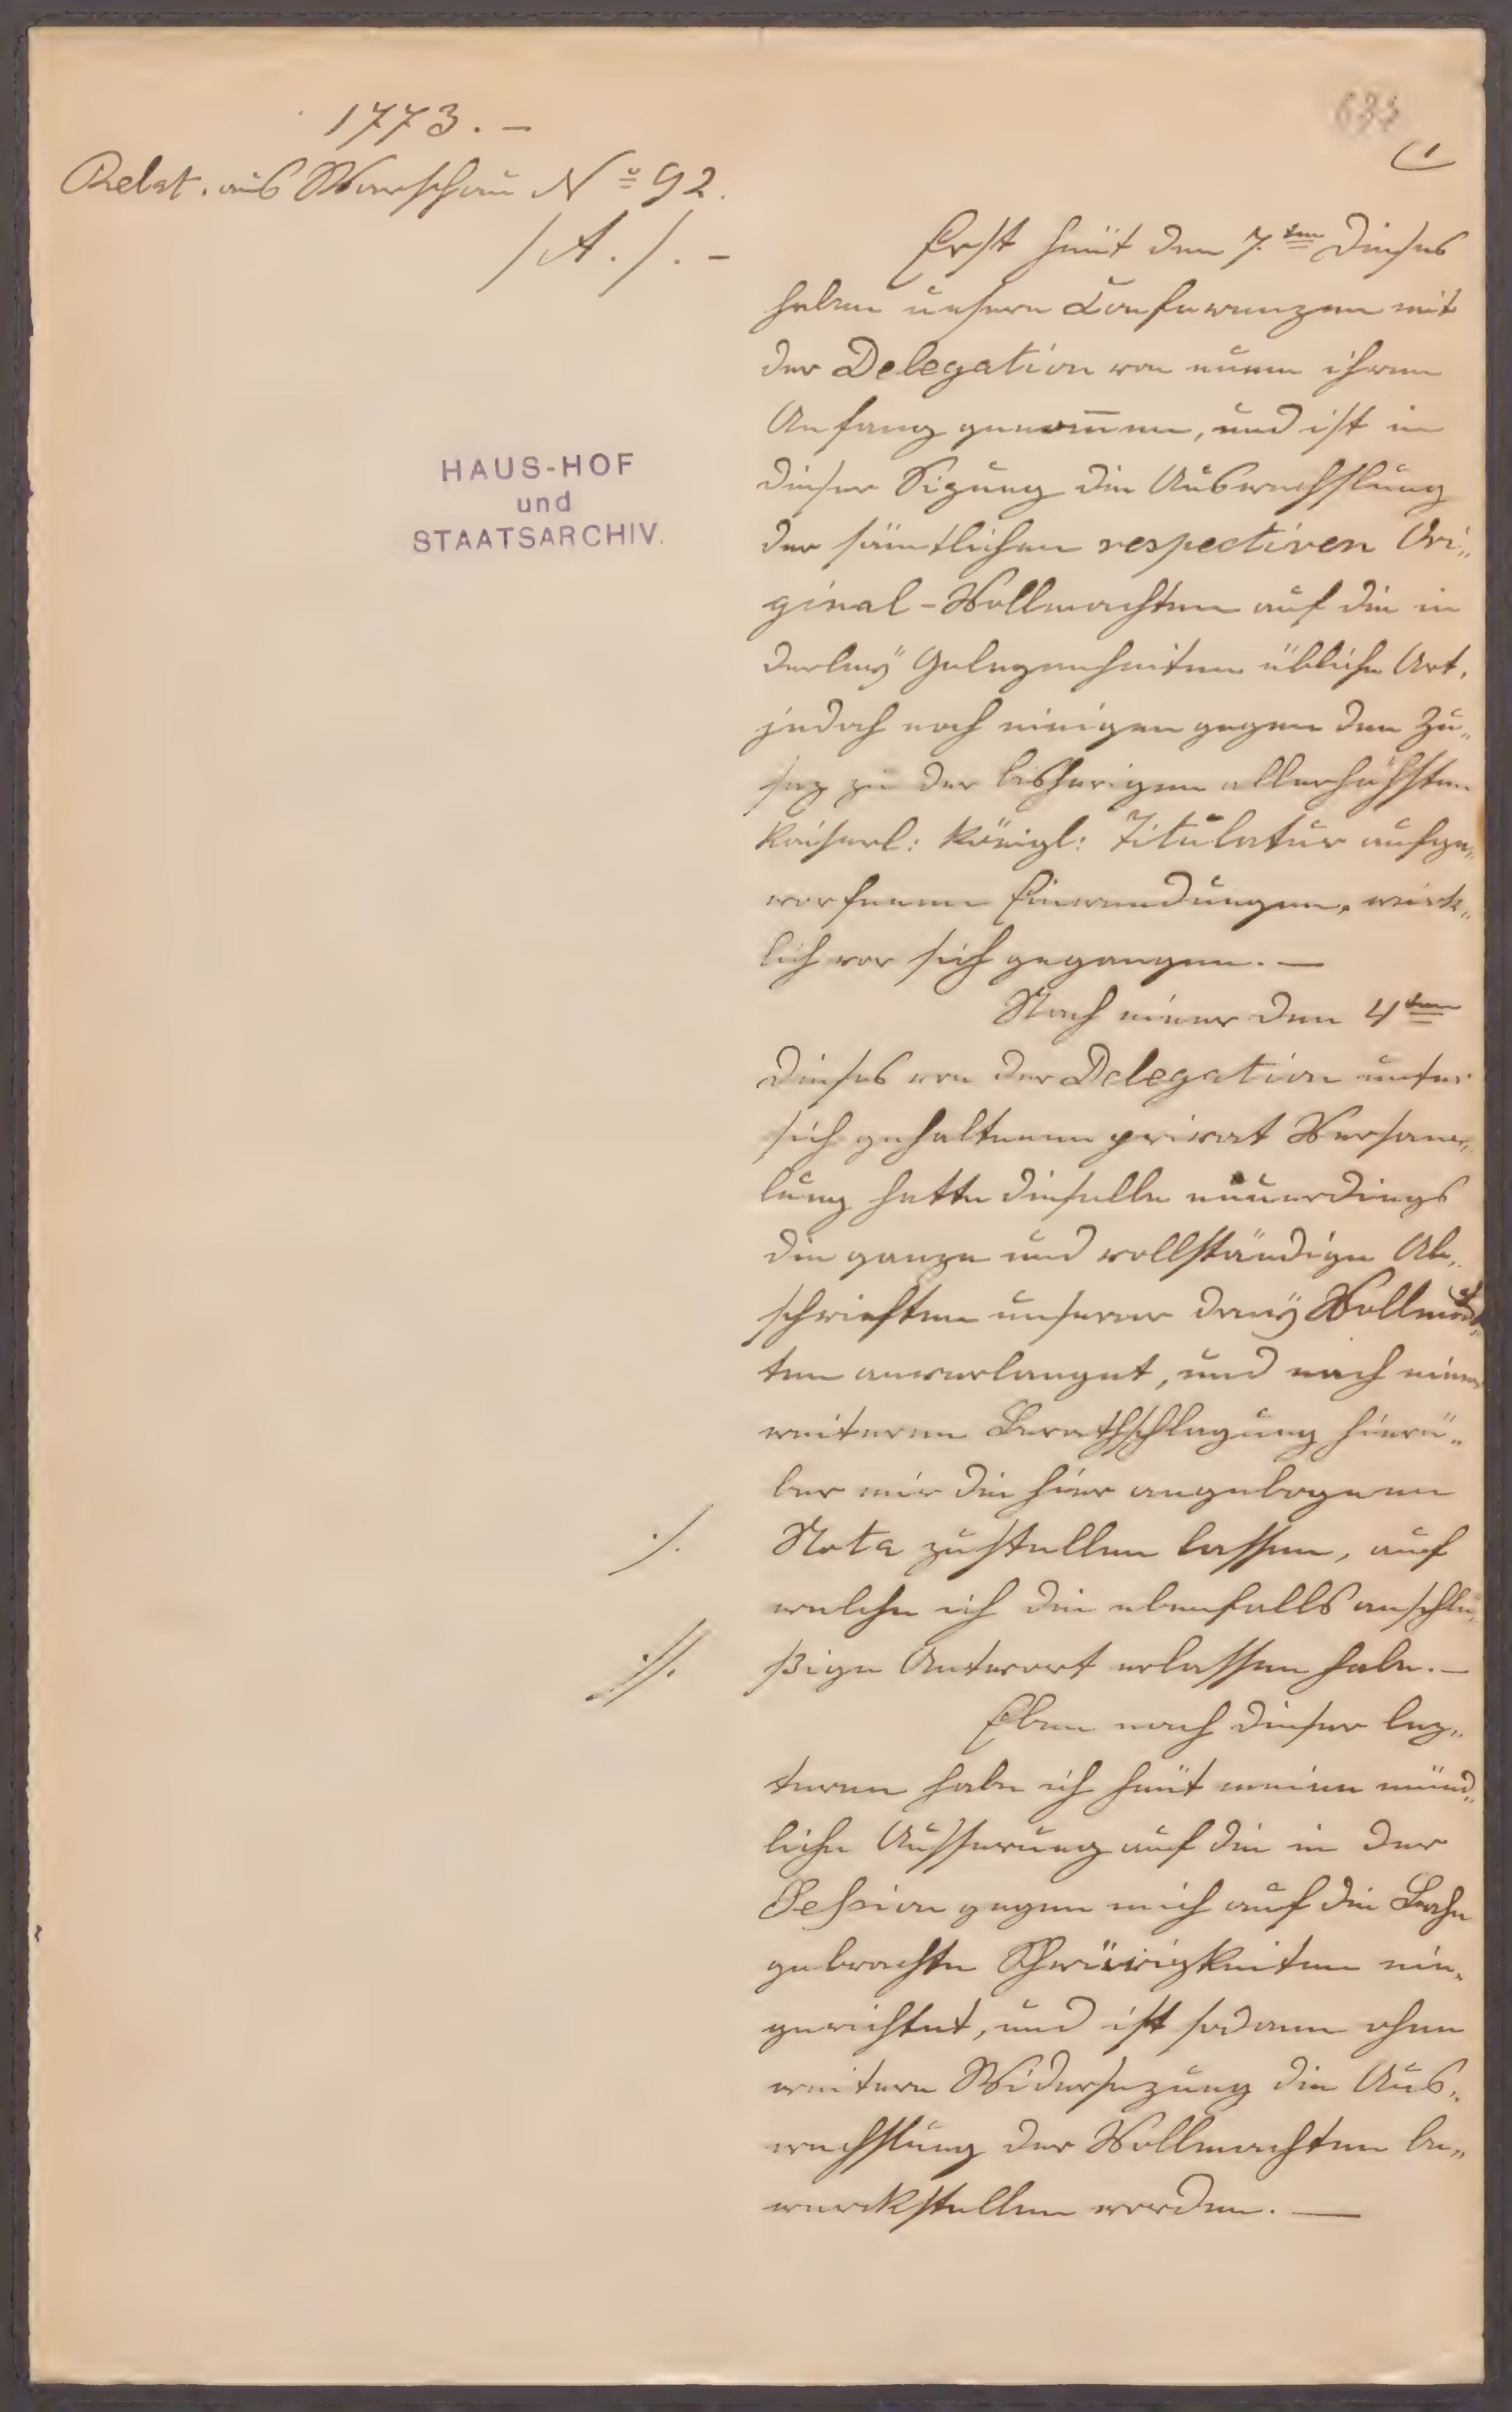 1773. –
Relat. aus Warschau No 92.
/A./. –
HAUS-HOF
und
STAATSARCHIV.
1
Erst heüt den 7.ten dieses
haben unsere Conferenzen mit
der Delegation von neuem ihren
Anfang genom̅en, und ist in
dieser Sizung die Auswechslung
der sämtlichen respectiven Ori„
ginal-Vollmachten auf die in
derleÿ Gelegenheiten übliche Art,
jedoch nach einigen gegen den Zu„
saz zu der bisherigen allerhöchsten
Kaiserl: Königl: Titulatur aufge„
worfenen Einwendungen, wirk„
lich vor sich gegangen. —
Nach einer den 4ten
dieses von der Delegation unter
sich gehaltenen privat Versam„
lung hatte dieselbe neuerdings
die ganze und vollständige Ab„
schrieften unserer dreÿ Vollmach„
ten anverlanget, und nach einer
weiteren Berathschlagung hierü„
ber mir die hier angebogenen
./. Nota zustellen lassen, auf
welche ich die ebenfalls anschlü„
.//. ßige Antwort erlassen habe. —
Eben nach dieser lez„
teren habe ich heüt meine münd„
liche Äusserung auf die in der
Session gegen mich auf die Bahn
gebrachte Schwürigkeiten ein„
gerichtet, und ist sodann ohne
weitere Widersezung die Aus„
wechslung der Vollmachten be„
werckstellen worden. —